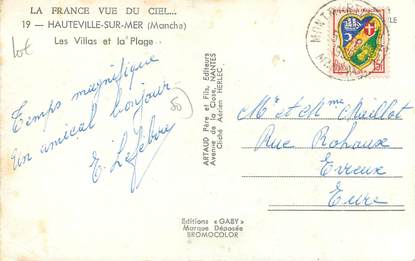 LA FRANCE VUE DU CIEL...
19 — HAUTEVILLE-SUR-MER (Manche)
Les Villas et la Plage
lot
50
Temps magnifique
Un amical bonjour
E. Lefebvre
ARTAUD Père et Fils, Editeurs
Avenue de la Close, NANTES
Cliché Adrien HERLEC
Editions « GABY »
Marque Déposée
BROMOCOLOR
Mr et Mme Maillot
Rue Rohaux
Evreux
Eure